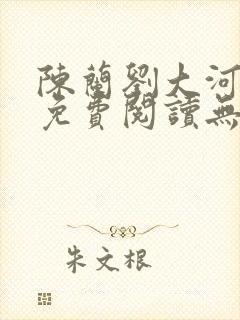 陳蘭劉大河
免費閱讀無
朱文根